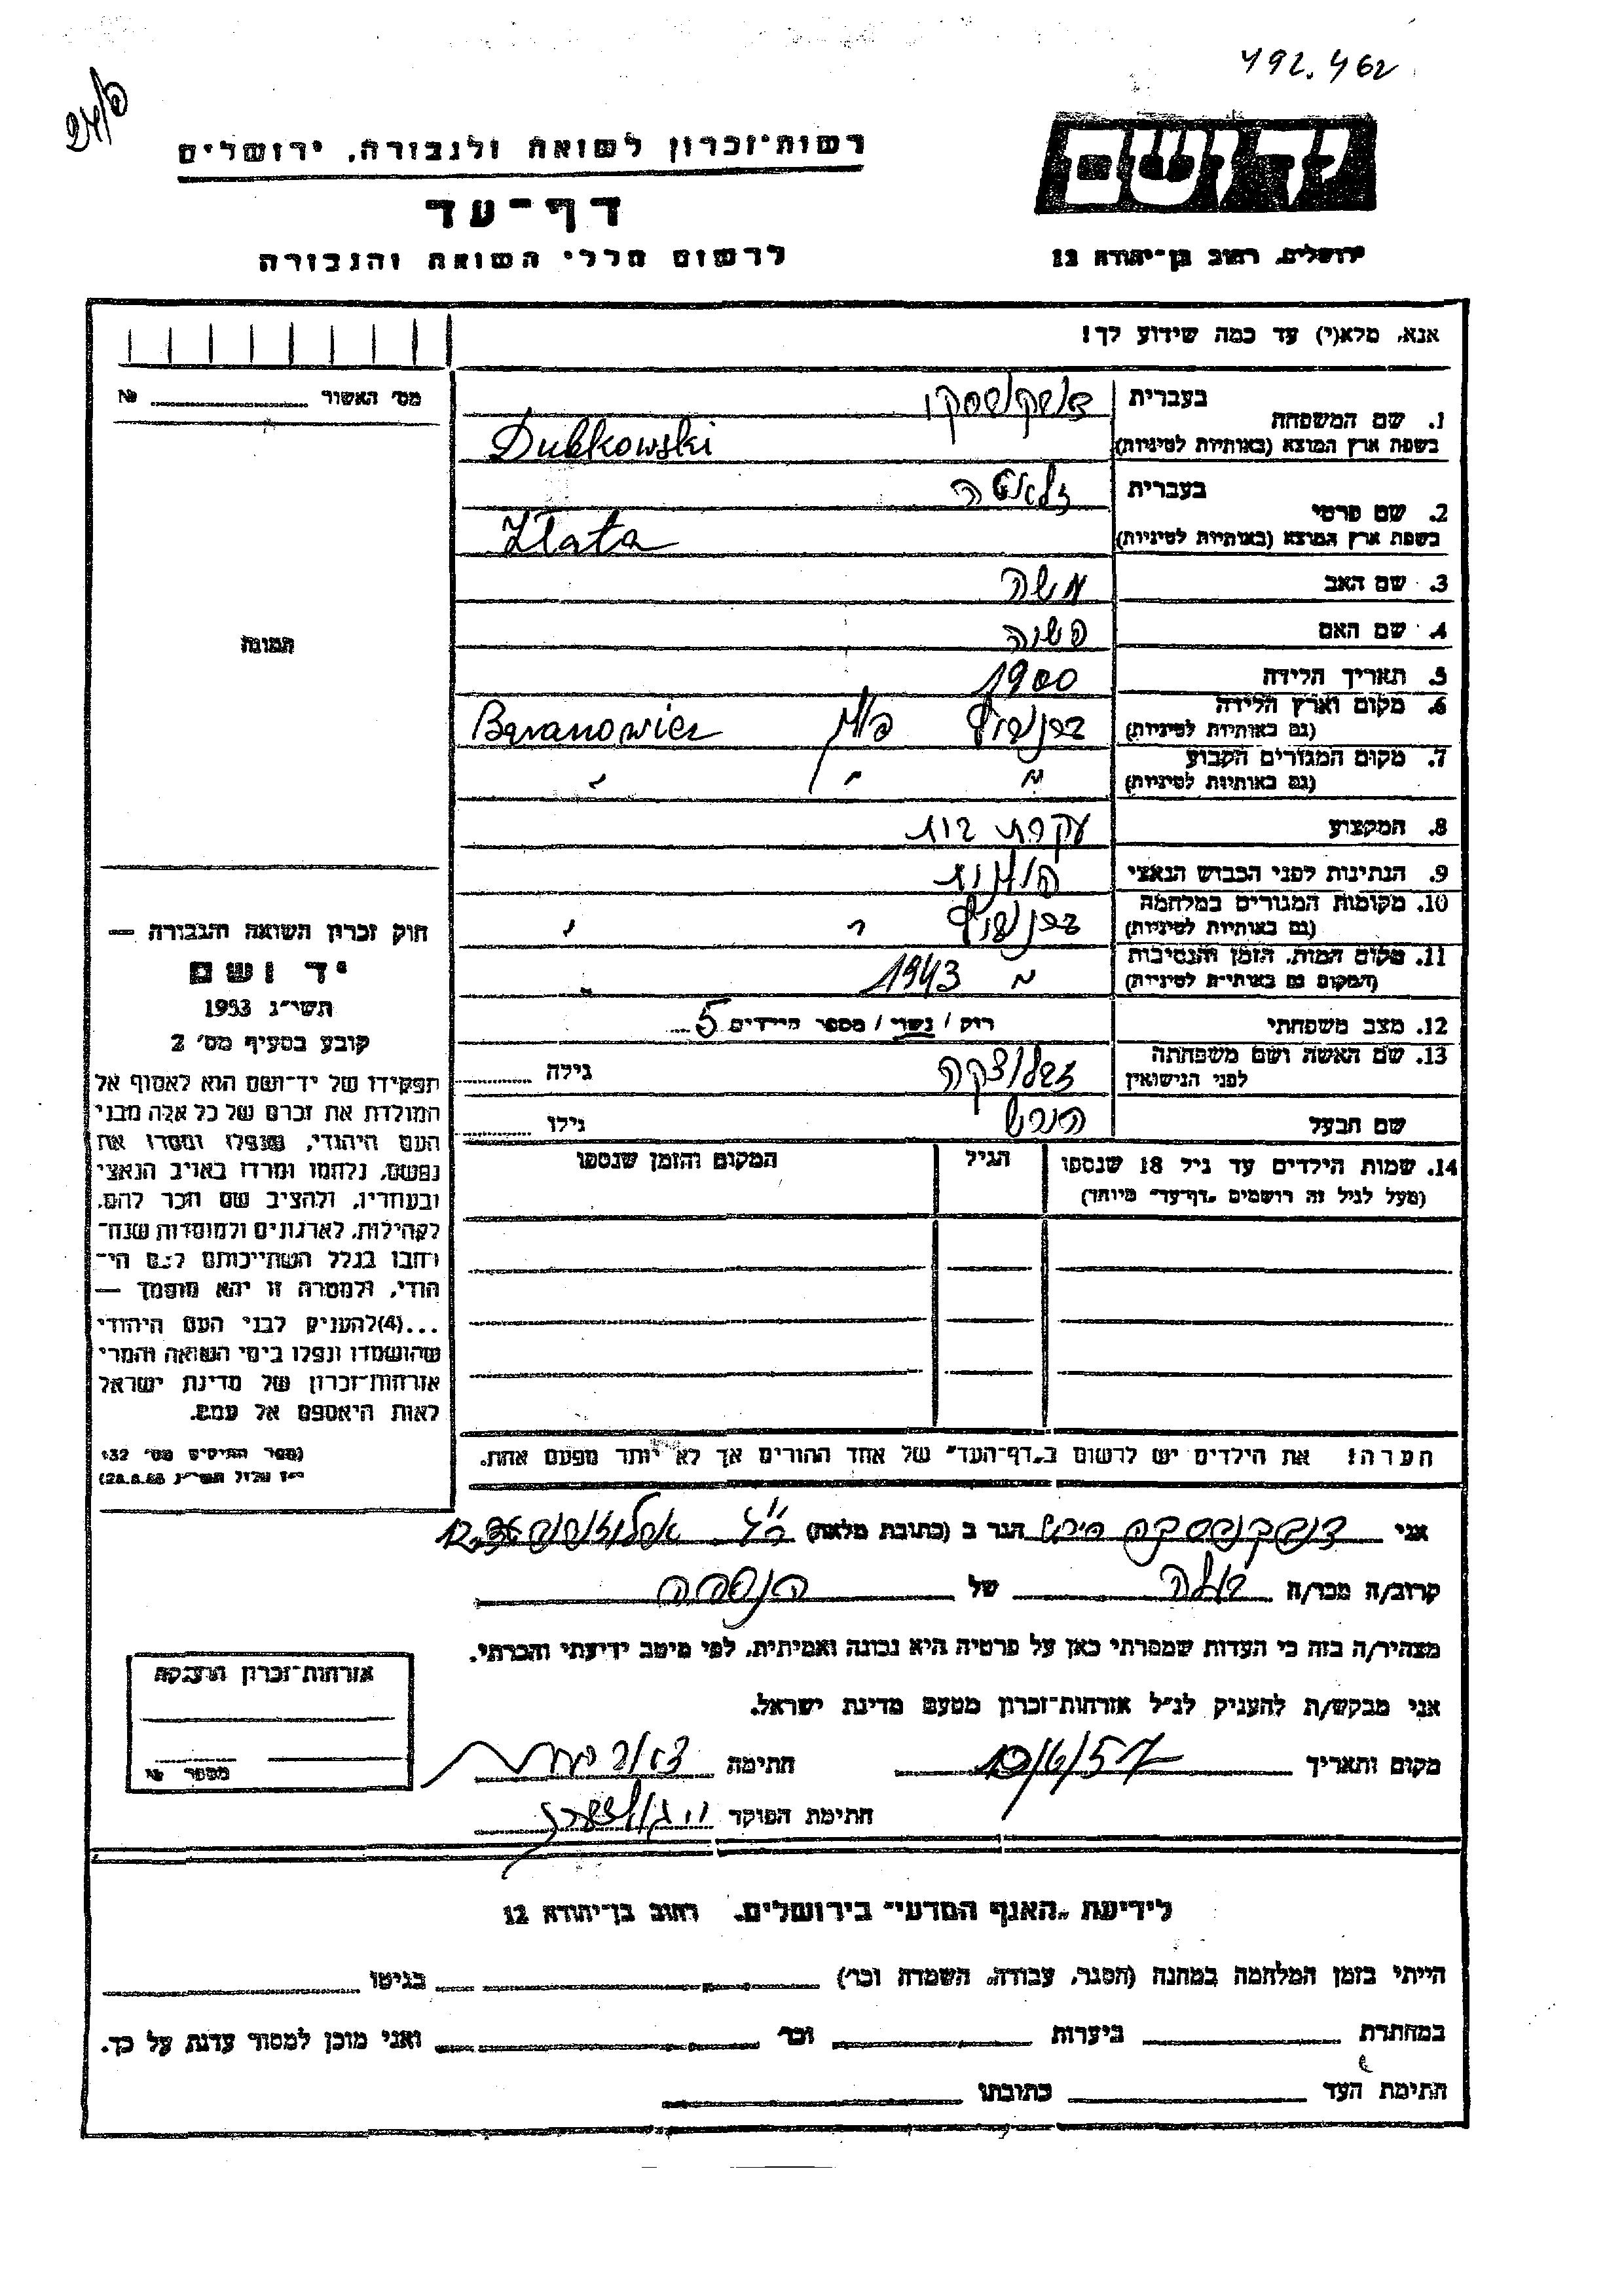 492.462
רשות־זכרון לשואה ולגבורה, ירושלים
יד ושם
דף־עד
לרשום חללי השואה והגבורה
ירושלים, רחוב בן־יהודה 12
אנא, מלא(י) עד כמה שידוע לך!
מס׳ האשור №
1. שם המשפחה
בעברית
בשפת ארץ המוצא (באותיות לטיניות) Dubkowski
2. שם פרטי
בעברית זלאטה
בשפת ארץ המוצא (באותיות לטיניות) Złata
3. שם האב משה
4. שם האם
תמונה
5. תאריך הלידה 1900
6. מקום וארץ הלידה
(גם באותיות לטיניות) Baranowicz
7. מקום המגורים הקבוע
(גם באותיות לטיניות) " " "
8. המקצוע עקרת בית
9. הנתינות לפני הכבוש הנאצי
10. מקומות המגורים במלחמה
(גם באותיות לטיניות) " "
11. מקום המות, הזמן והנסיבות
(המקום גם באותיות לטיניות) " 1943 "
12. מצב משפחתי רוק / נשוי / מספר הילדים 5
13. שם האשה ושם משפחתה
לפני הנישואין גילה
שם הבעל הירש גילו
14. שמות הילדים עד גיל 18 שנספו
(מעל לגיל זה רושמים „דף־עד״ מיוחד)
הגיל
המקום והזמן שנספו
חוק זכרון השואה והגבורה —
יד ושם
תשי״ג 1953
קובע בסעיף מס׳ 2
תפקידו של יד־ושם הוא לאסוף אל
המולדת את זכרם של כל אלה מבני
העם היהודי, שנפלו ומסרו את
נפשם, נלחמו ומרדו באויב הנאצי
ובעוזריו, ולהציב שם וזכר להם,
לקהילות, לארגונים ולמוסדות שנח־
רבו בגלל השתייכותם לעם הי־
הודי, ולמטרה זו יהא מוסמך —
...(4) להעניק לבני העם היהודי
שהושמדו ונפלו בימי השואה והמרי
אזרחות־זכרון של מדינת ישראל
לאות היאספם אל עמם.
(ספר החוקים מס׳ 132
הערה! את הילדים יש לרשום ב„דף־העד״ של אחד ההורים אך לא יותר מפעם אחת.
אני דובקובסקי הירש הגר ב (כתובת מלאה)
קרוב/ה מכר/ה בעלה של הנספה
מצהיר/ה בזה כי העדות שמסרתי כאן על פרטיה היא נכונה ואמיתית, לפי מיטב ידיעתי והכרתי.
אני מבקש/ת להעניק לנ״ל אזרחות־זכרון מטעם מדינת ישראל.
אזרחות־זכרון הוענקה
מספר №
מקום ותאריך 10/6/57 חתימה
חתימת הפוקד
לידיעת „האגף המדעי״ בירושלים. רחוב בן־יהודה 12
הייתי בזמן המלחמה במחנה (הסגר, עבודה, השמדה וכו׳) בגיטו
במחתרת ביערות וכו׳ ואני מוכן למסור עדות על כך.
חתימת העד כתובתו